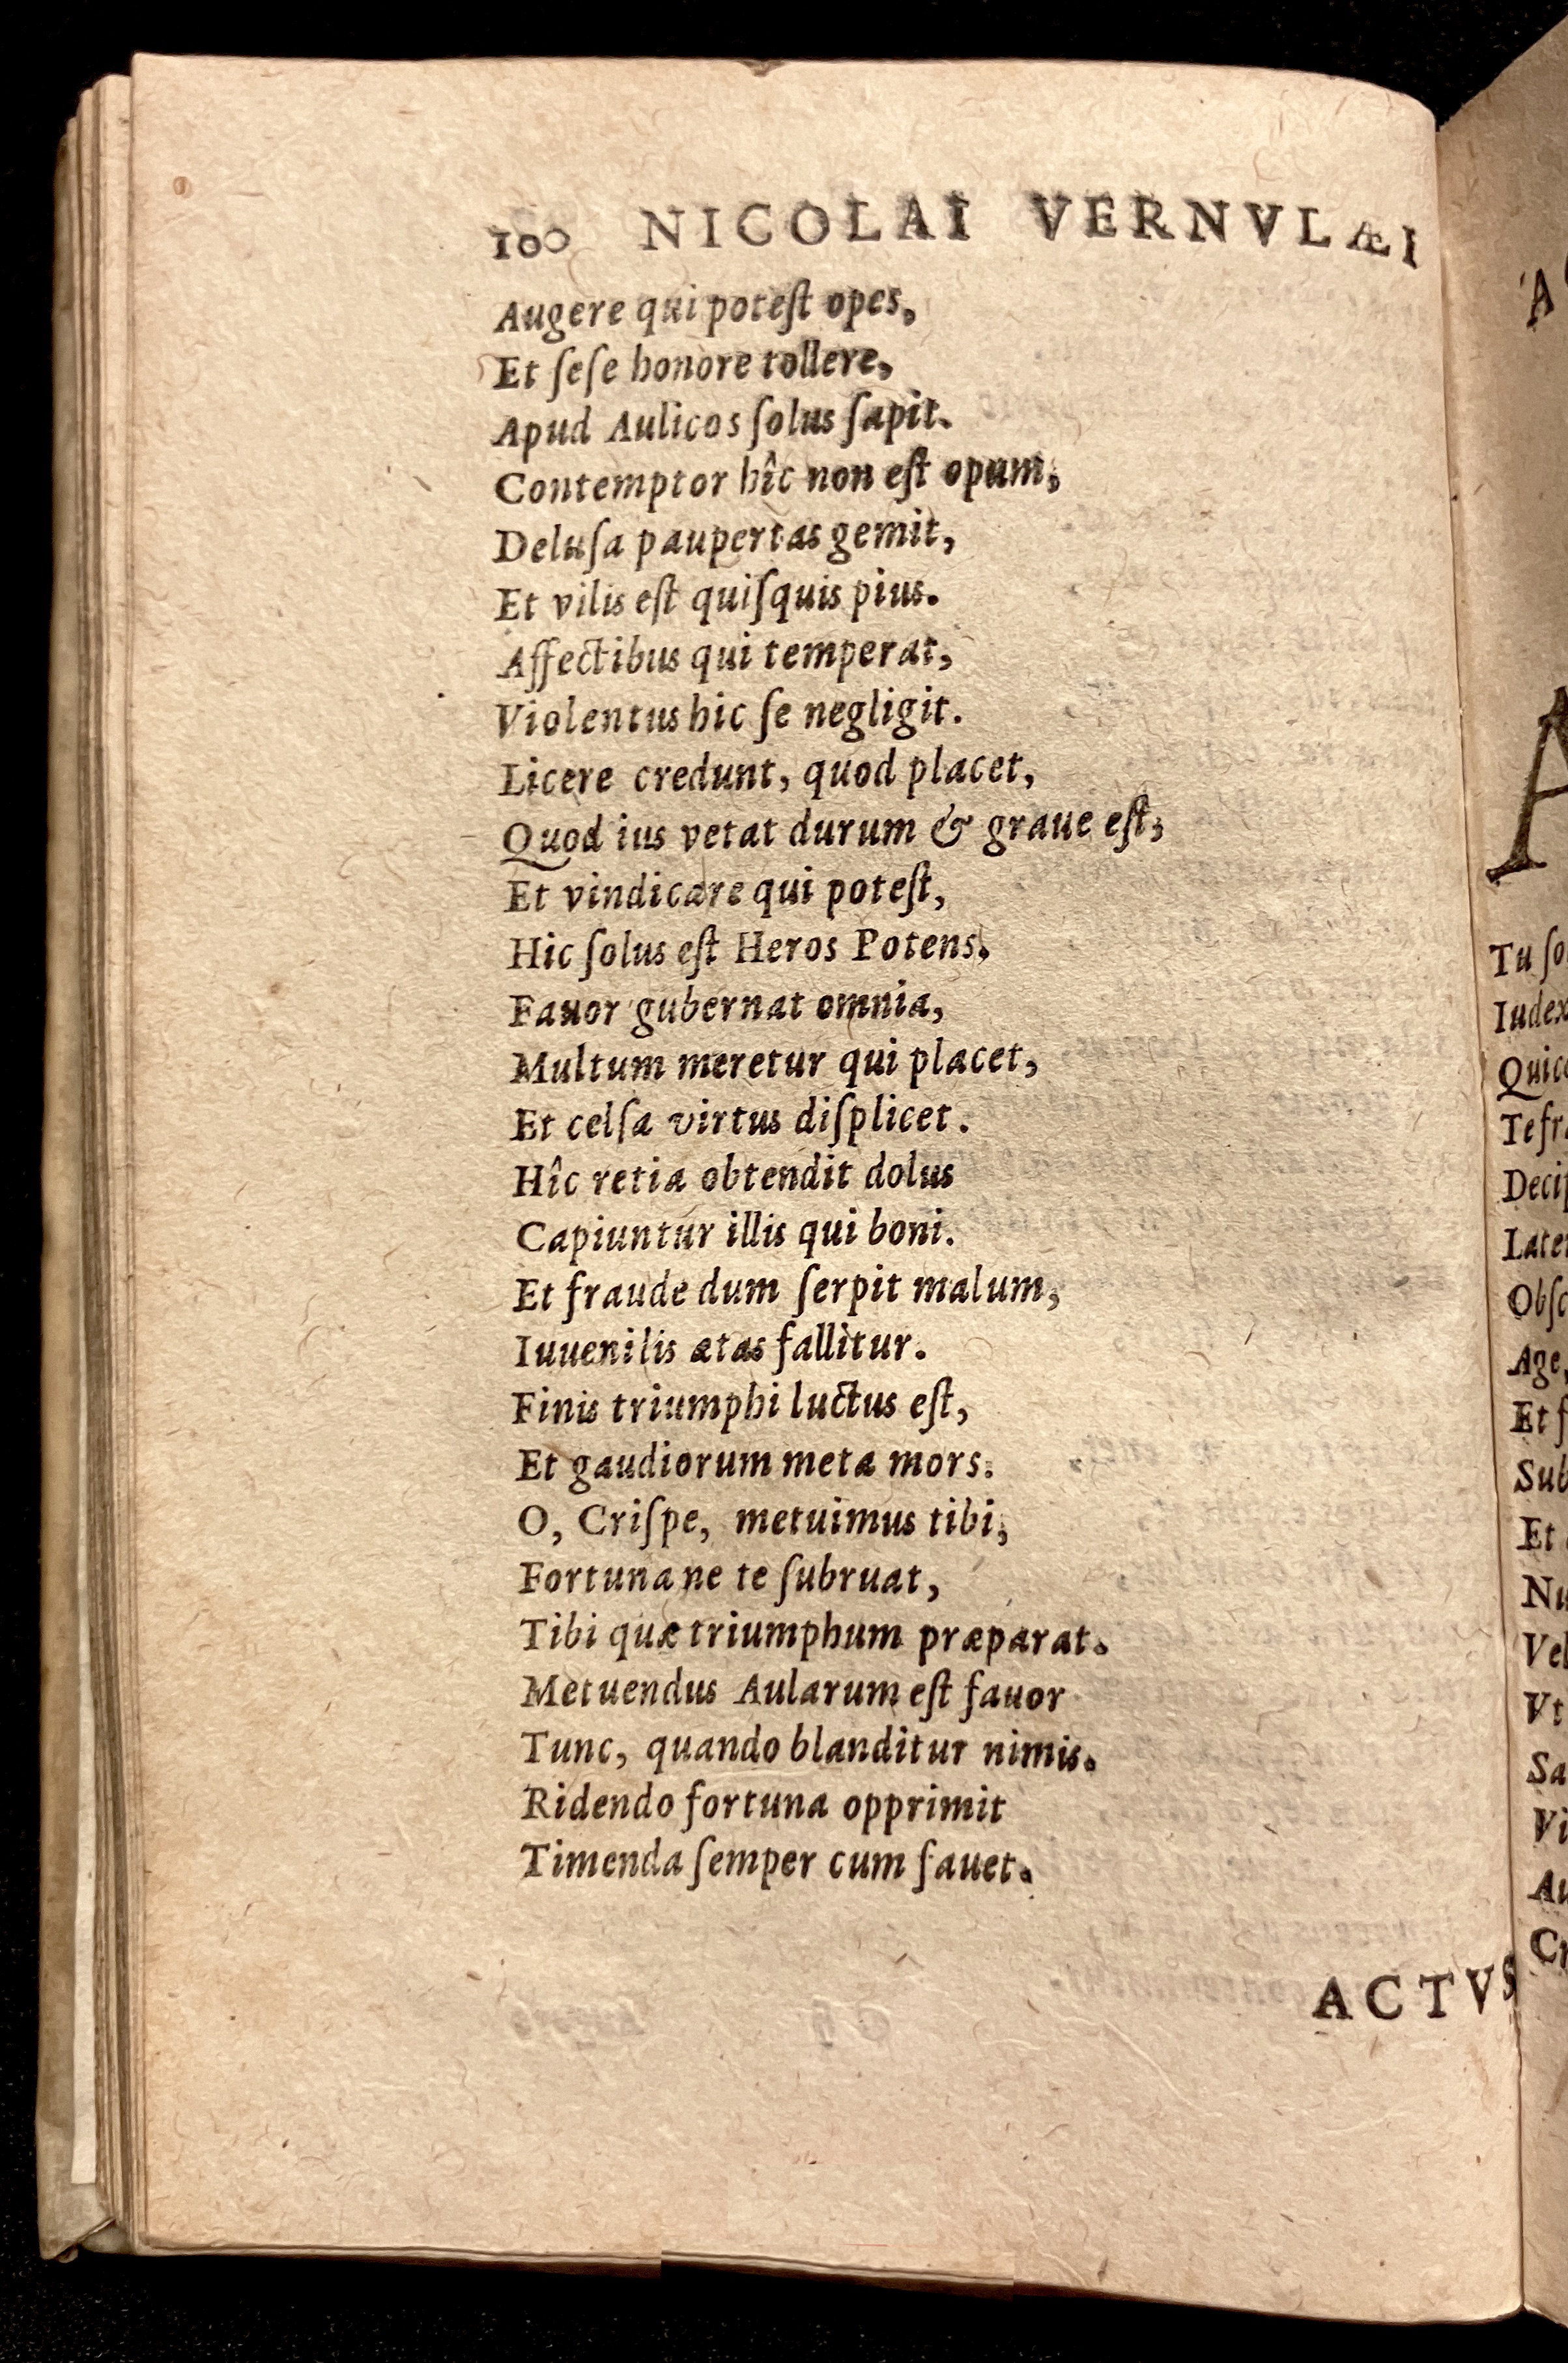 100 NICOLAI VERNVLÆI
Augere qui poteſt opes,
Et ſeſe honore tollere,
Apud Aulicos ſolus ſapit.
Contemptor hîc non eſt opum,
Deluſa paupertas gemit,
Et vilis eſt quiſquis pius.
Affectibus qui temperat,
Violentus hic ſe negligit.
Licere credunt, quod placet,
Quod ius vetat durum & graue eſt,
Et vindicare qui poteſt,
Hic ſolus eſt Heros Potens.
Fauor gubernat omnia,
Multum meretur qui placet,
Et celſa virtus diſplicet.
Hîc retia obtendit dolus
Capiuntur illis qui boni.
Et fraude dum ſerpit malum,
Iuuenilis ætas fallitur.
Finis triumphi luctus eſt,
Et gaudiorum meta mors.
O, Criſpe, metuimus tibi,
Fortuna ne te ſubruat,
Tibi quæ triumphum præparat.
Metuendus Aularum eſt fauor
Tunc, quando blanditur nimis.
Ridendo fortuna opprimit
Timenda ſemper cum fauet.
ACTVS
A
A
Tu ſo
Iudex
Quic
Te fr
Deci
Late
Obſc
Age,
Et f
Sub
Et
Nu
Vel
Vt
Sa
Vi
Au
Cr